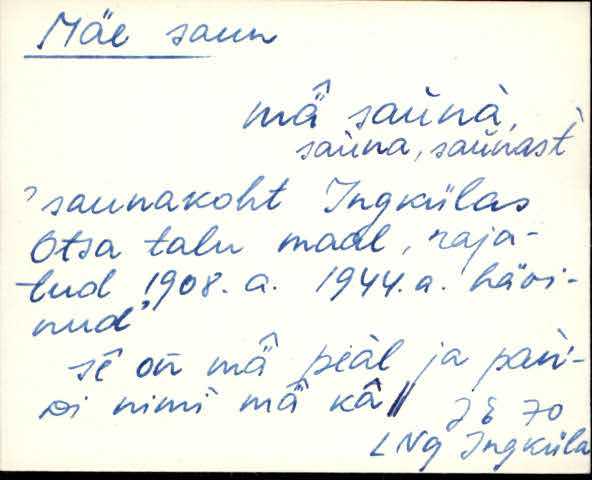 Mäe saun
mä̂ saùnà,
saùna, saùnast
'saunakoht Ingkülas
Otsa talu maal, raja-
tud 1908. a. 1944. a. hävi-
nud'
sê on mä̂ peàl ja pań-
di nimì mä̂ kâ ||
J E 70
LNg Ingküla